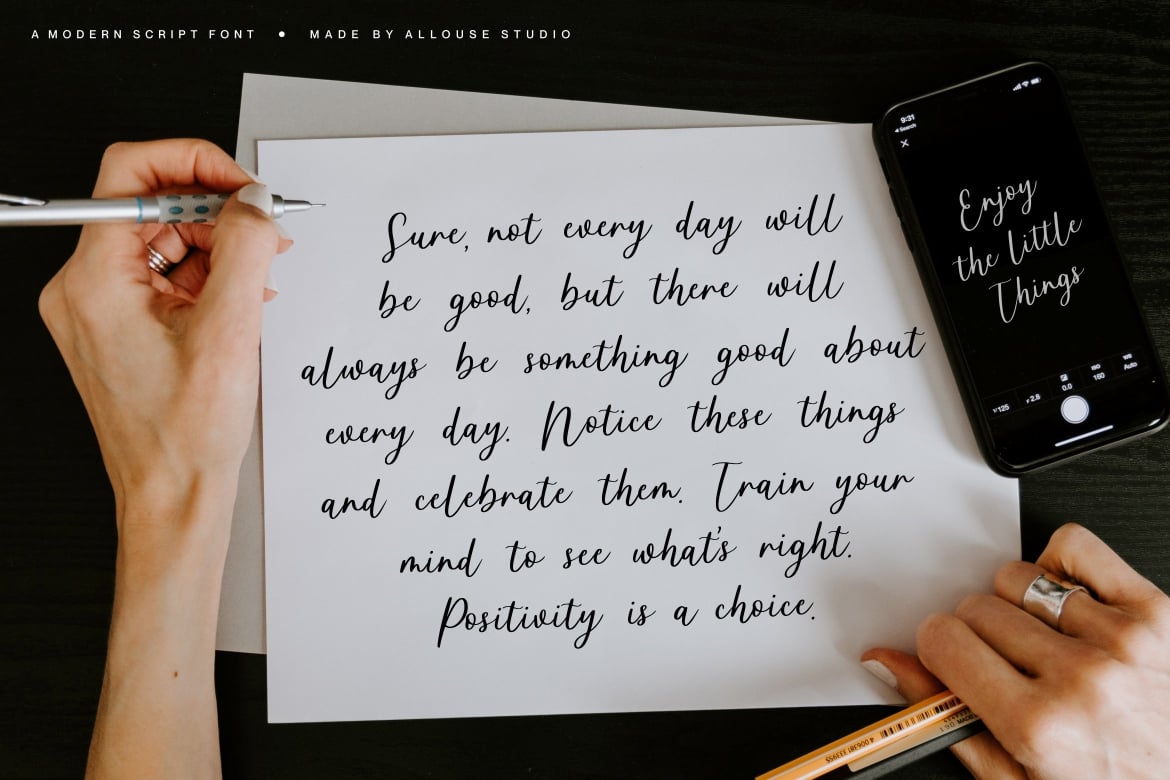 A MODERN SCRIPT FONT • MADE BY ALLOUSE STUDIO
Sure, not every day will
be good, but there will
always be something good about
every day. Notice these things
and celebrate them. Train your
mind to see what's right.
Positivity is a choice.
9:31
Search
Enjoy
the little
Things
1/125
F 2.8
0.0
ISO
160
WB
Auto